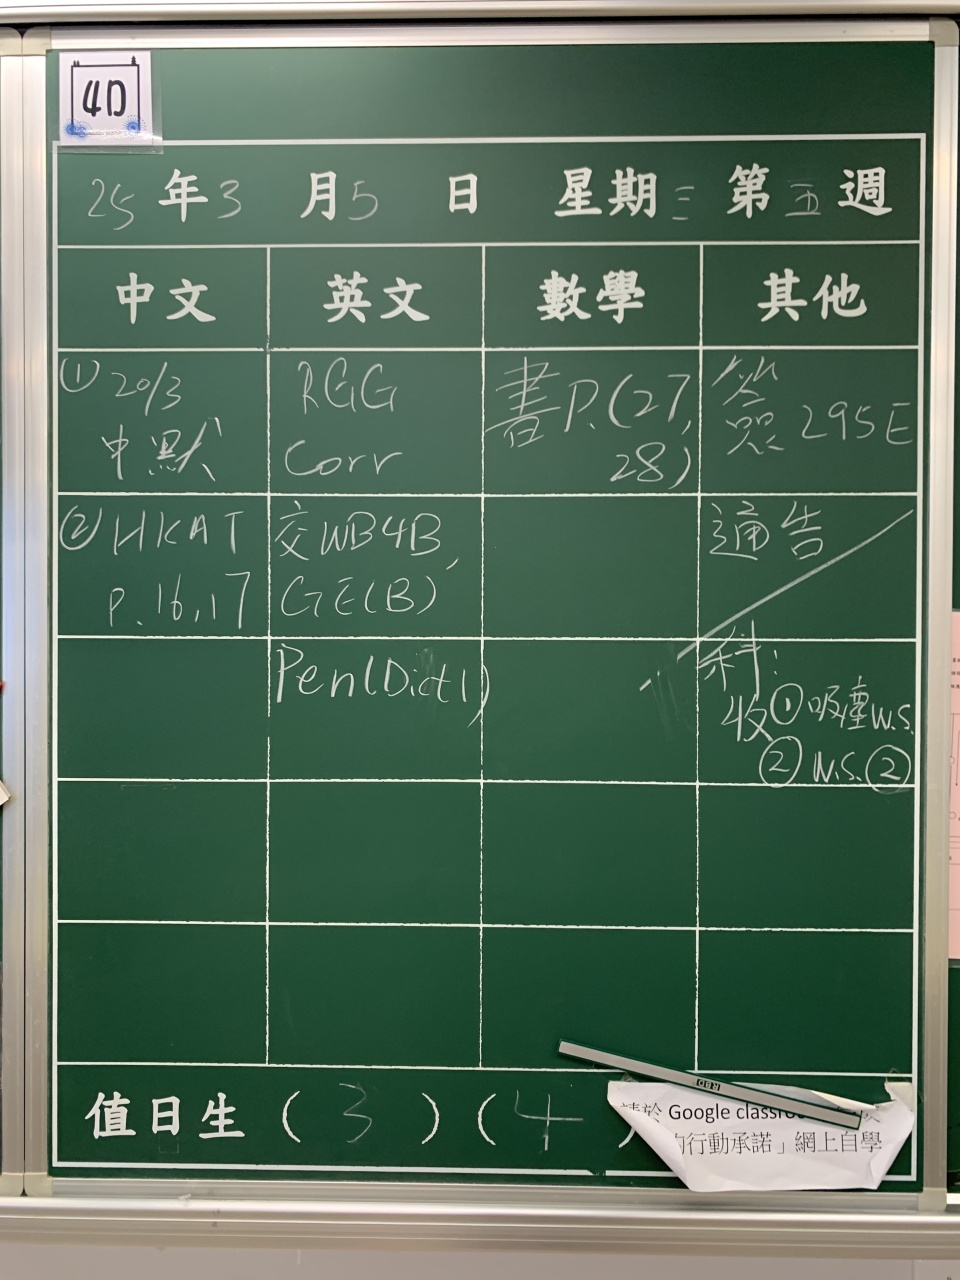 4D
25年3月5日 星期三 第五週
中文 英文 數學 其他
① 20/3
中默
RGG
Corr
書P.(27,
28)
簽
簽 295E
② HKAT
P.16,17
交WB4B,
GE(B)
通告
Pen(Dict1)
科:
收①吸塵W.S.
② W.S.②
值日生 (3)(4
請於 Google classroo
的行動承諾」網上自學